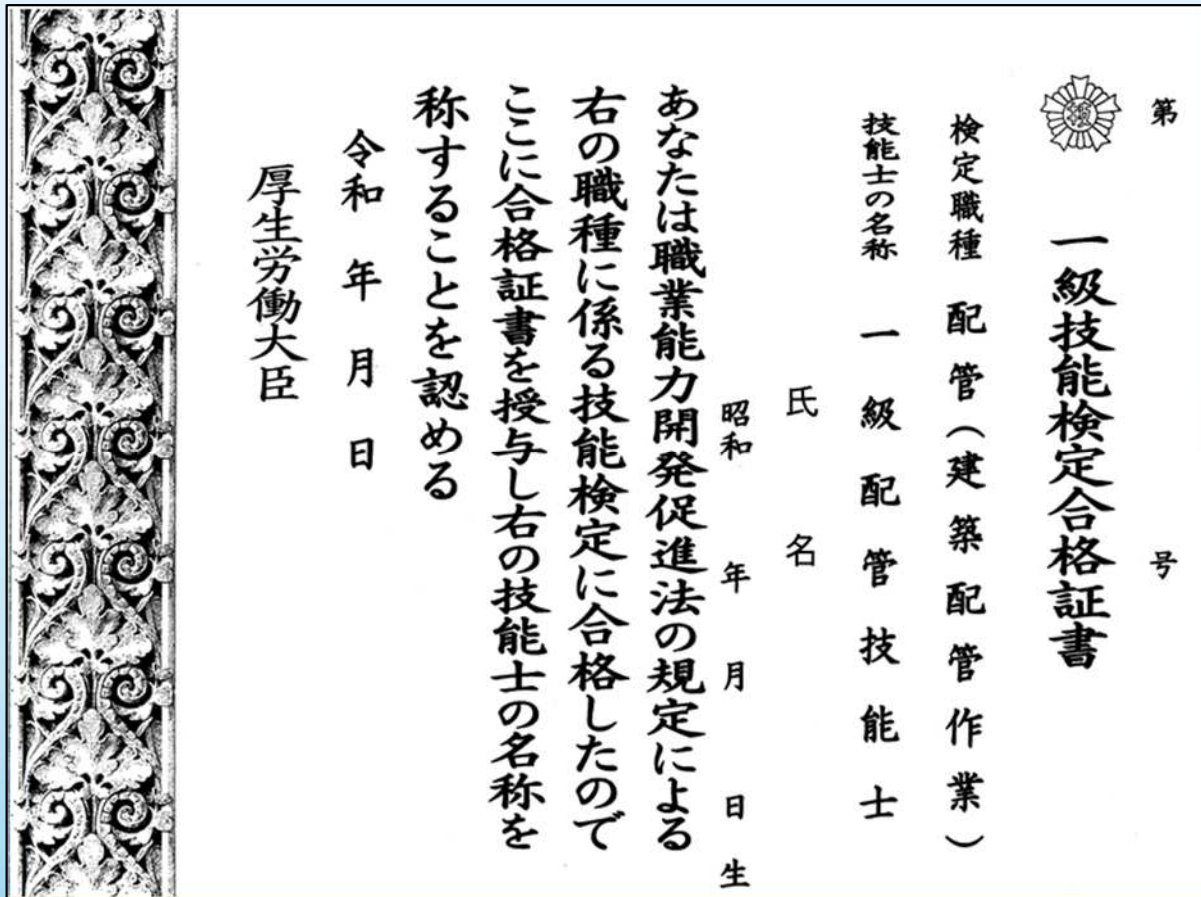 第 号
技
一級技能検定合格証書
検定職種 配管(建築配管作業)
技能士の名称 一級配管技能士
氏名
昭和 年 月 日生
あなたは職業能力開発促進法の規定による
右の職種に係る技能検定に合格したので
ここに合格証書を授与し右の技能士の名称を
称することを認める
令和 年 月 日
厚生労働大臣